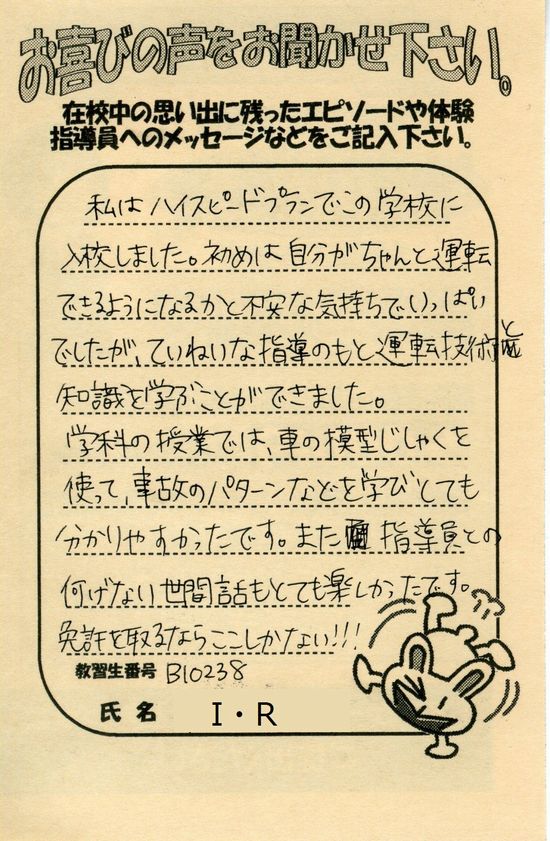 お喜びの声をお聞かせ下さい。
在校中の思い出に残ったエピソードや体験
指導員へのメッセージなどをご記入下さい。
私はハイスピードプランでこの学校に
入校しました。初めは自分がちゃんと運転
できるようになるかと不安な気持ちでいっぱい
でしたが、ていねいな指導のもと運転技術と
知識を学ぶことができました。
学科の授業では、車の模型じしゃくを
使って、事故のパターンなどを学びとても
分かりやすかったです。また 指導員との
何げない世間話もとても楽しかったです。
免許を取るならここしかない!!!
教習生番号 B10238
氏名 I・R